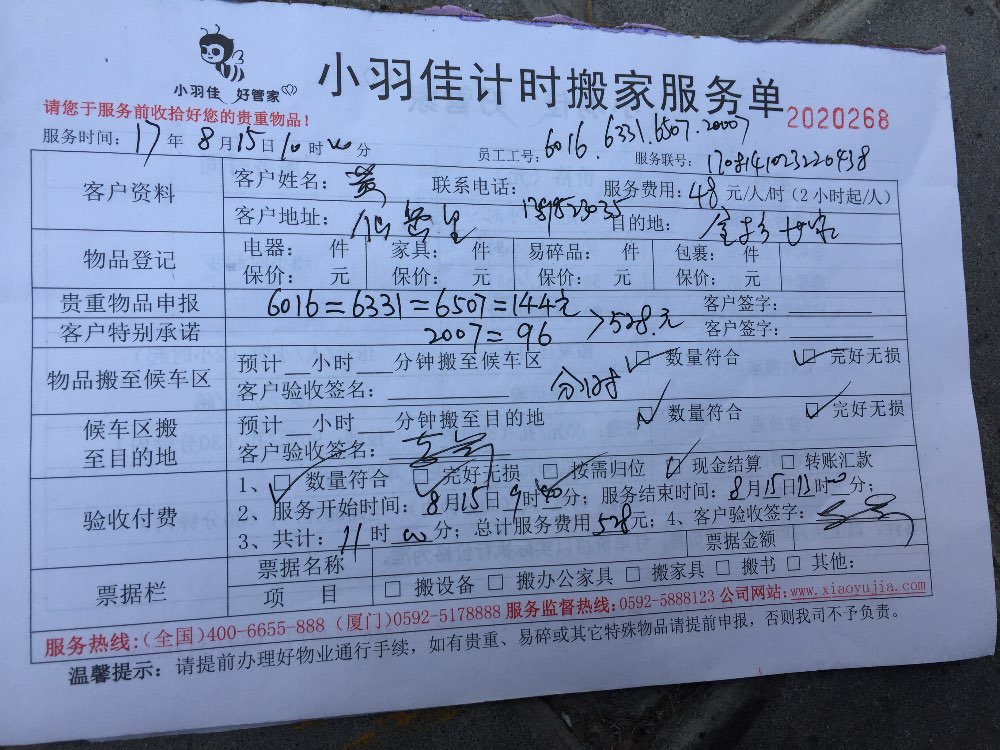 小羽佳 好管家
小羽佳计时搬家服务单
2020268
请您于服务前收拾好您的贵重物品!
服务时间: 17年 8月15日10时00分 员工工号: 6016.6331.6507.2007 服务联号:
客户资料 客户姓名: 黄 联系电话: 服务费用: 48元/人/时(2小时起/人)
客户地址: 目的地:
物品登记 电器: 件 家具: 件 易碎品: 件 包裹: 件
保价: 元 保价: 元 保价: 元 保价: 元
贵重物品申报 6016=6331=6507=144元 客户签字:
客户特别承诺 2007=96 >528元 客户签字:
物品搬至候车区 预计__小时___分钟搬至候车区 □ 数量符合 □ 完好无损
客户验收签名: 分时
候车区搬至目的地 预计__小时___分钟搬至目的地 □ 数量符合 □ 完好无损
客户验收签名:
验收付费 1、□ 数量符合 □ 完好无损 □ 按需归位 □ 现金结算 □ 转账汇款
2、服务开始时间: 8月15日9时00分; 服务结束时间: 8月15日13时00分;
3、共计: 11时00分; 总计服务费用528元; 4、客户验收签字:
票据栏 票据名称 票据金额
项 目 □ 搬设备 □ 搬办公家具 □ 搬家具 □ 搬书 □ 其他:
服务热线:(全国)400-6655-888 (厦门)0592-5178888 服务监督热线:0592-5888123 公司网站:www.xiaoyujia.com
温馨提示: 请提前办理好物业通行手续，如有贵重、易碎或其它特殊物品请提前申报，否则我司不予负责。